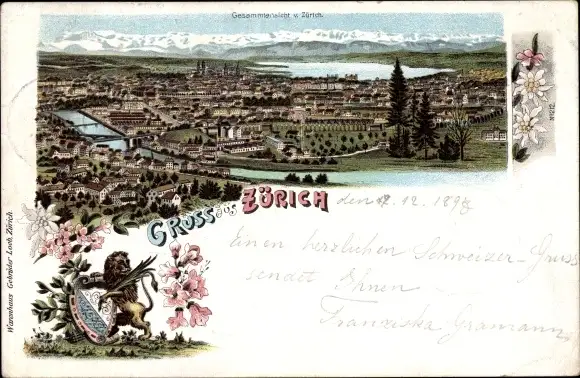 Gesammtansicht v. Zürich.
GRUSS aus ZÜRICH
den 12.12.1898
Einen herzlichen Schweizer-Gruss
sendet Ihnen
Franziska Gramann
Warenhaus Gebrüder Loeb, Zürich.